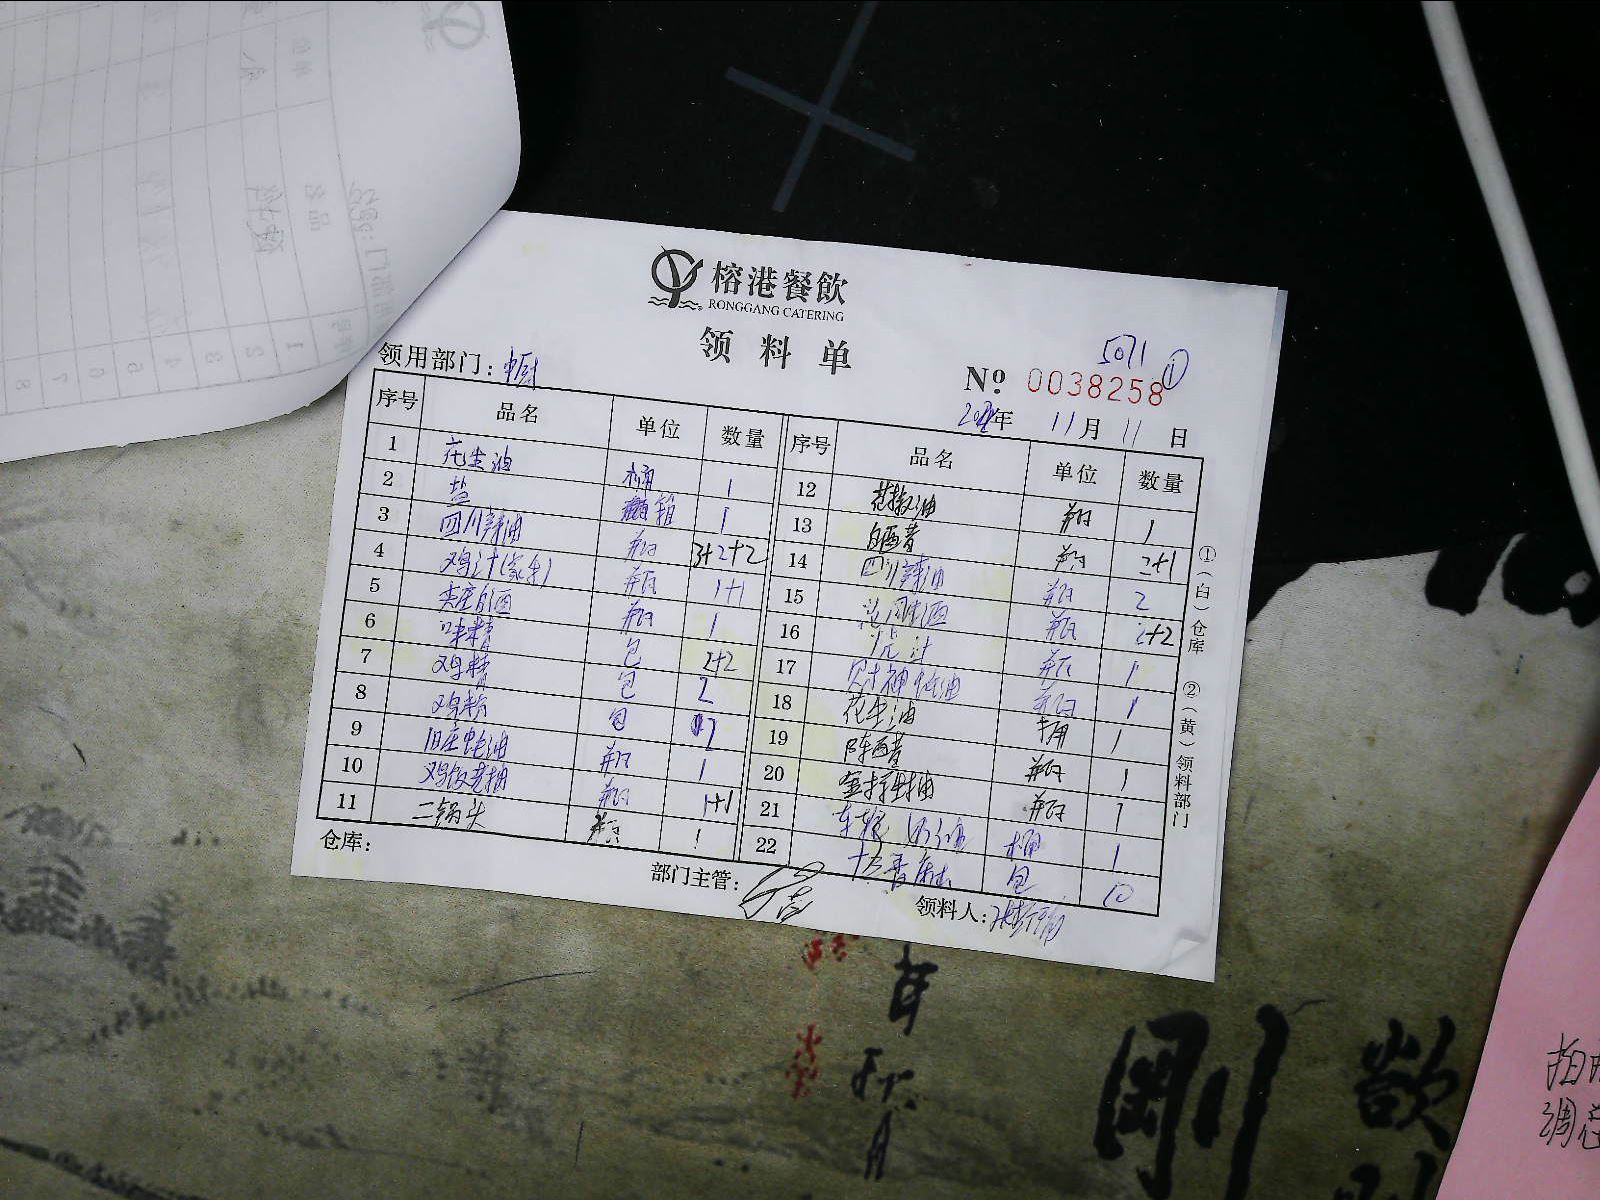 榕港餐飲
RONGGANG CATERING
领料单
5071 ①
领用部门：中厨
№ 0038258
年 11月 11日
序号 品名 单位 数量
1 花生油 桶 1
2 盐 箱 1
3 四川辣油 瓶 3+2+2
4 鸡汁(家乐) 瓶 1+1
5 瓶 1
6 味精 包 2+2
7 鸡精 包 2
8 鸡粉 包 2
9 旧庄蚝油 瓶 1
10 鸡饭老抽 瓶 1+1
11 二锅头 瓶 1
序号 品名 单位 数量
12 花椒油 瓶 1
13 白醋 瓶 2+1
14 四川辣油 瓶 2
15 瓶 2+2
16 汁 瓶 1
17 财神蚝油 瓶 1
18 花生油 桶 1
19 陈醋 瓶 1
20 瓶 1
21 桶 1
22 包 10
①（白）仓库 ②（黄）领料部门
仓库：
部门主管：
领料人：
剛
欲